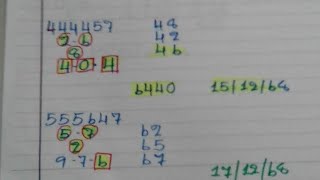 444457 48
2-6 42
8 46
4-0-4
6440 15/12/68
555647 62
5-7 65
2 67
9-7-6
17/12/68